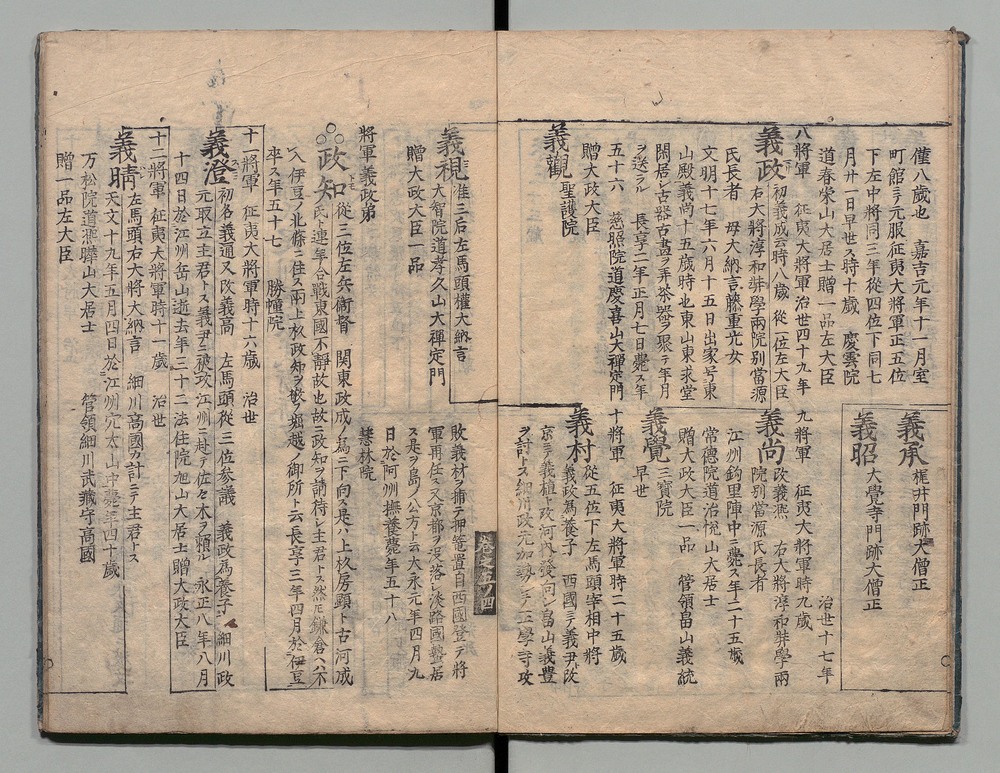 僅八歳也 嘉吉元年十一月室
町館ニテ元服征夷大将軍正五位
下左中将同三年從四位下同七
月廿一日早世ス時十歳 慶雲院
道春榮山大居士贈一品左大臣
八將軍 征夷大將軍治世四十九年
義政 初義成云時八歳 從一位左大臣
右大將淳和奨學兩院別當源
氏長者 母大納言藤重光女
文明十七年六月十五日出家号東
山殿義尚十五歳時也東山東求堂
閑居シ古器古畫ヲ弄茶器ヲ翫テ年月
ヲ送ラル 長享二年正月七日薨ス年
五十六 慈照院道慶喜山大禅定門
贈大政大臣
義觀 聖護院
義承 梶井門跡大僧正
義昭 大覺寺門跡大僧正
治世十七年
九將軍 征夷大將軍時九歳
義尚 改義凞 右大將淳和奨學兩
院別當源氏長者
江州鈎里陣中ニ薨ス年二十五歳
常徳院道治悦山大居士
贈大政大臣一品 管領畠山義統
義覺 三寳院
早世
十將軍 征夷大將軍時二十五歳
義村 從五位下左馬頭宰相中將
義政爲養子 西國ニテ義尹改
京ニテ義植ト改河内發向シ畠山義豊
ヲ討トス細川政元加勢シテ正學寺攻
義視 准三后左馬頭權大納言
大智院道孝久山大禅定門
贈大政大臣一品
將軍義政弟
政知 從三位左兵衛督 關東政成ノ爲ニ下向ス是ハ上杦房顕ト古河成
氏連年合戰東國不靜故也故ニ政知ヲ請待シ主君トス然モ鎌倉ヘハ不
入伊豆ノ北條ニ住ス兩上杦政知ヲ敬フ堀越ノ御所ト云長享三年四月於伊豆
卒ス年五十七 勝幢院
敗義材ヲ捕テ押篭置自西國登テ將
軍再任ス又京都ヲ没落シ淡路國蟄居
ス是ヲ島ノ公方ト云大永元年四月九
日於阿州撫養薨年五十八
慧林院
十一將軍 征夷大將軍時十六歳 治世
義澄 初名義通又改義高 左馬頭從三位参議 義政爲養子 細川政
元取立主君トス義尹ニ被攻江州ニ赴テ佐々木ヲ頼ル 永正八年八月
十四日於江州岳山逝去年三十二法住院旭山大居士贈大政大臣
十二將軍 征夷大將軍時十一歳 治世
義晴 左馬頭右大將大納言 細川高國カ計ニテ主君トス
天文十九年五月四日於江州穴太山中薨年四十歳
万松院道凞曄山大居士 管領細川武藏守高國
贈一品左大臣
巻之五ノ四